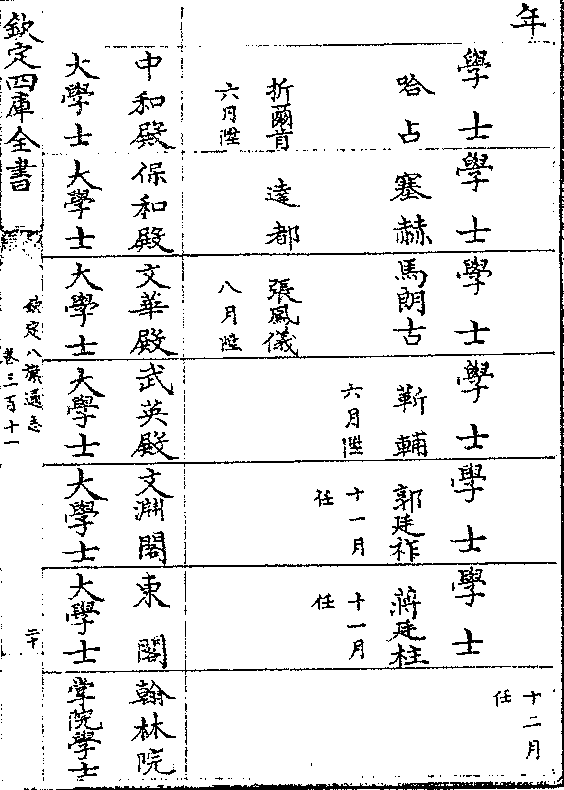 年
十二月
任
學士
學士
學士
學士
學士
學士
哈占
塞赫
馬朗古
靳輔
郭廷祚
蔣廷柱
六月陞
十一月
任
十一月
任
折爾肯
達都
張鳳儀
六月陞
八月陞
中和殿
大學士
保和殿
大學士
文華殿
大學士
武英殿
大學士
文淵閣
大學士
東閣
大學士
翰林院
掌院學士
欽定四庫全書
欽定八旗通志
卷三百十一
二十